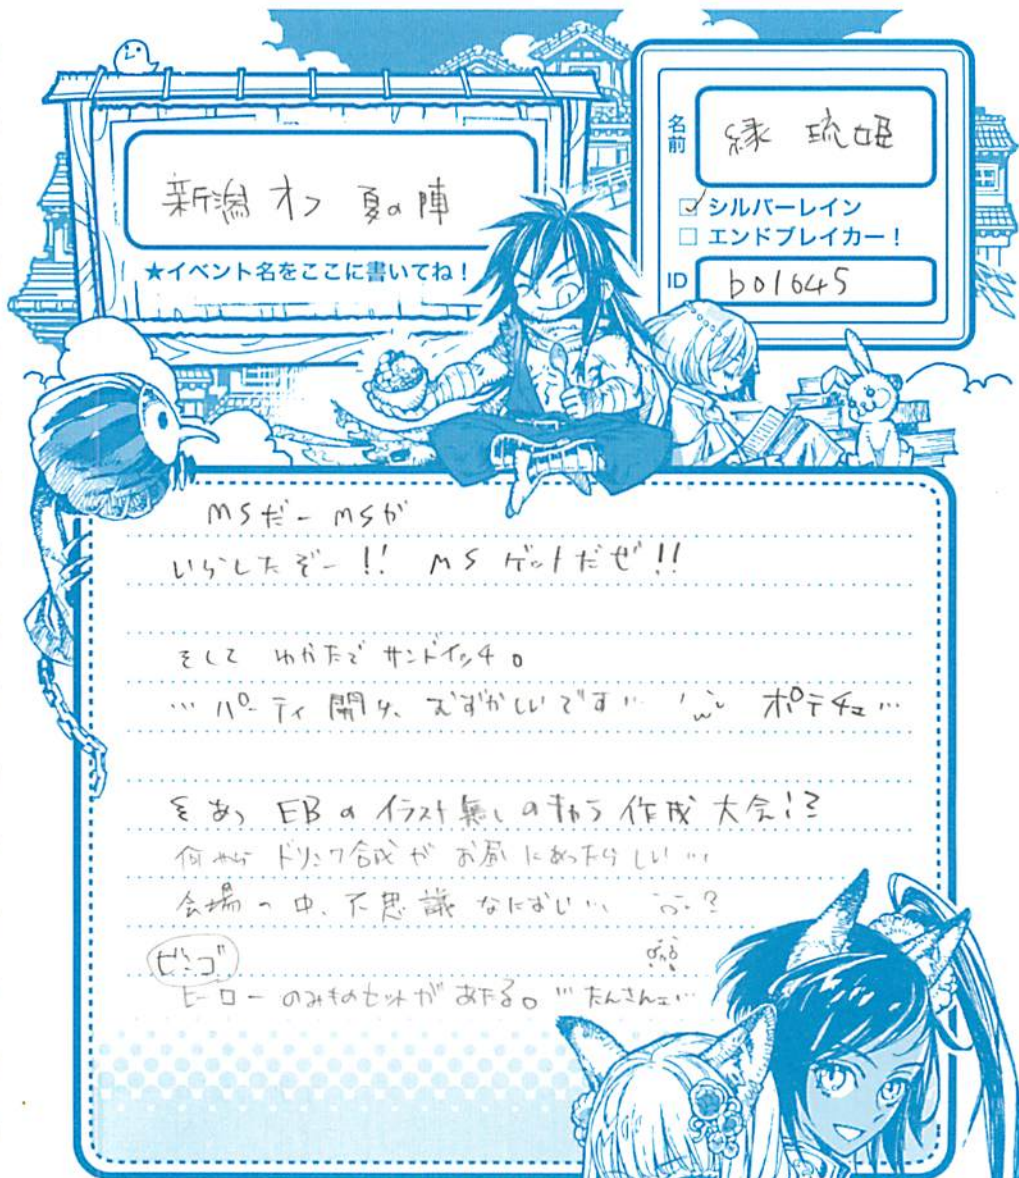 新潟オフ 夏の陣
★イベント名をここに書いてね！
名前
縁 琉姫
☑ シルバーレイン
□ エンドブレイカー！
ID
b01645
MSだー MSが
いらしたぞー!! MSゲットだぜ!!
そして サンドイッチ。
…パーティ開け、むずかしいです… ポテチェ…
EBのイラスト無しのキャラ作成大会!?
何やら ドリンク合成が お昼にあったらしい…
会場の中、不思議なにおい… ?
ビンゴ
ヒーローのみものセットがあたる。…たんさんェ…